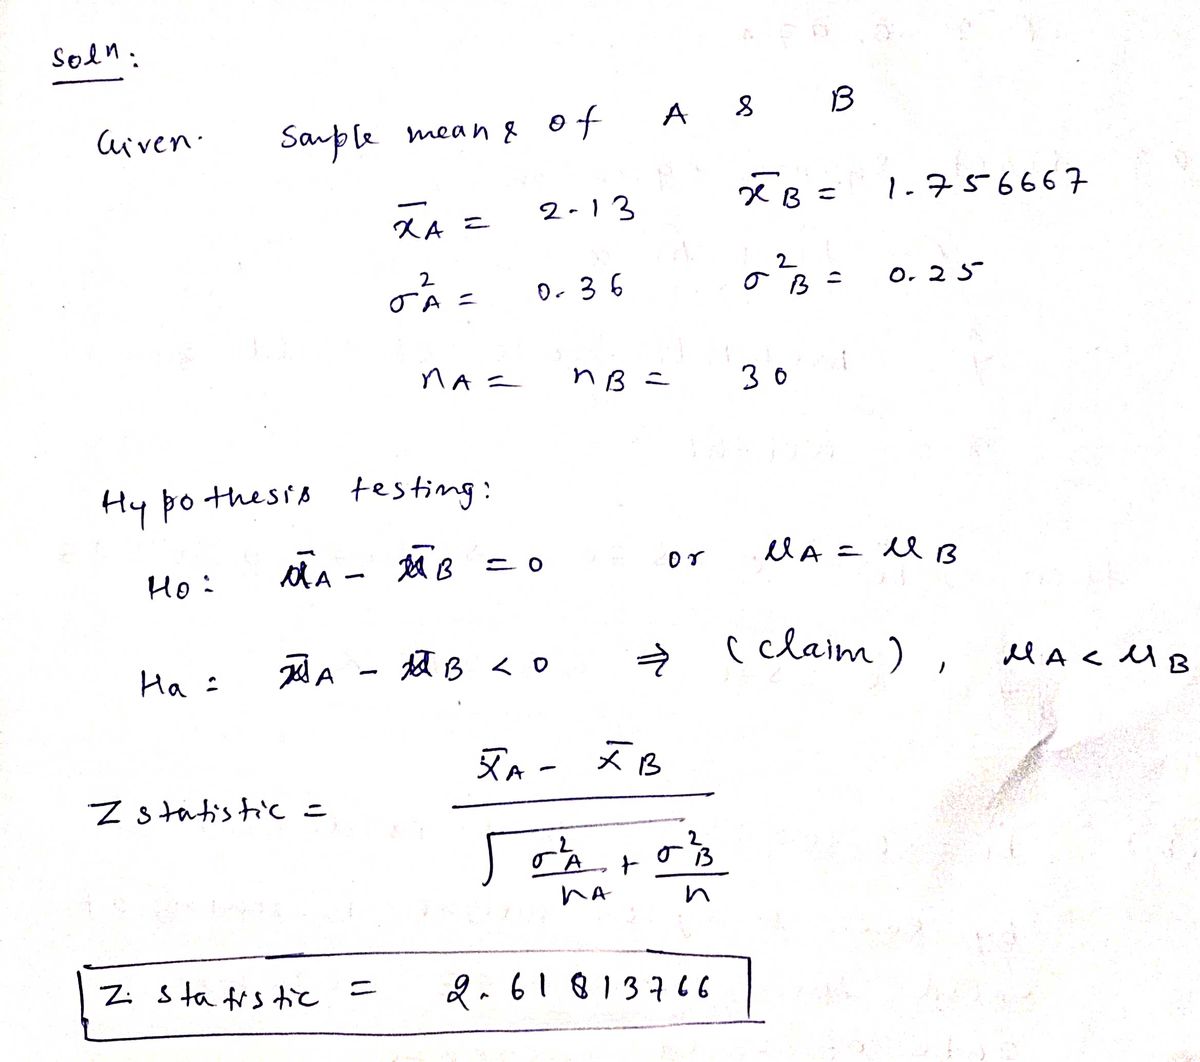 Soln:
Given. Sample means of A & B
x̄A = 2.13 x̄B = 1.756667
σ²A = 0.36 σ²B = 0.25
nA = nB = 30
Hypothesis testing:
H0: μ̄A - μ̄B = 0 or μA = μB
Ha: μ̄A - μ̄B < 0 ⇒ (claim), μA < μB
x̄A - x̄B
Z statistic =
√ σ²A/nA + σ²B/n
Z statistic = 2.61813766